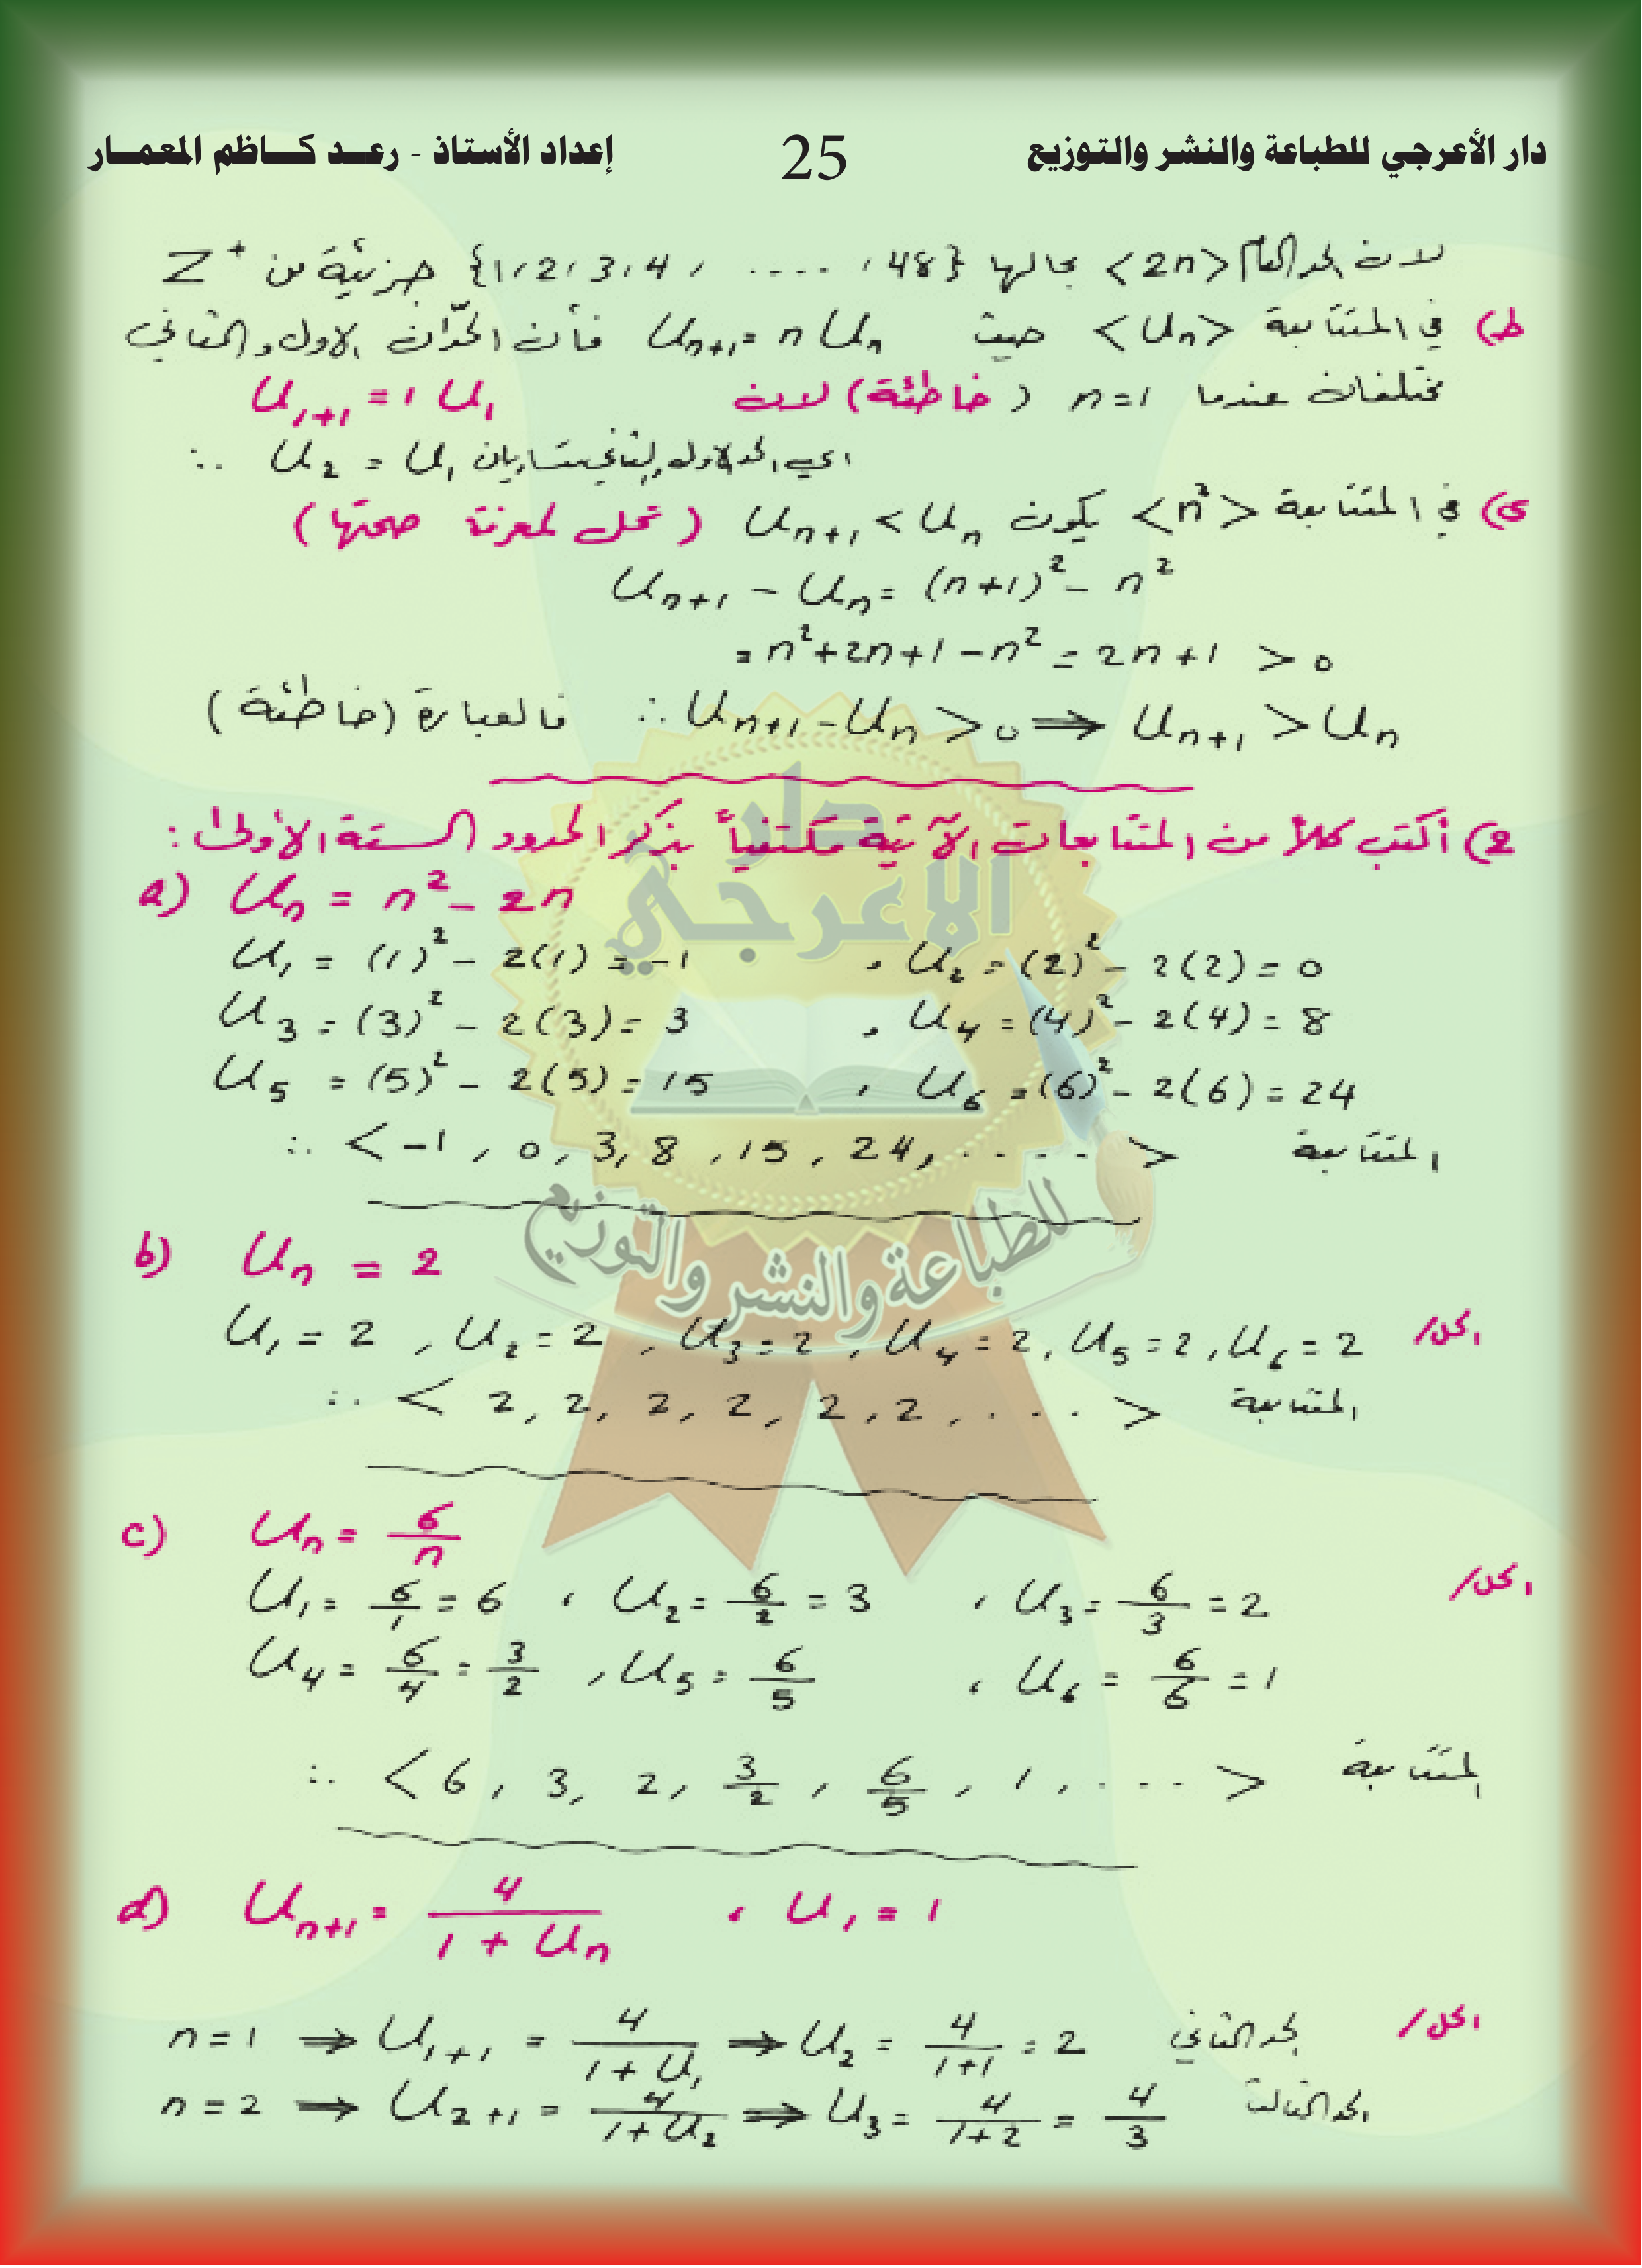 دار الأعرجي للطباعة والنشر والتوزيع 25 إعداد الأستاذ - رعد كاظم المعمار
لان الحد العام <2n> مجالها {1, 2, 3, 4, ...., 48} جزئية من Z⁺
ط) في المتتابعة <Un> حيث Uₙ₊₁ = n Uₙ فأن الحدّان الاول والثاني
مختلفان عندما n=1 (خاطئة) لان U₁₊₁ = 1 U₁
اي الحد الاول والثاني متساويان ∴ U₂ = U₁
ي) في المتتابعة <n²> يكون Uₙ₊₁ < Uₙ (تحل لمعرفة صحتها)
Uₙ₊₁ - Uₙ = (n+1)² - n²
= n²+2n+1-n² = 2n+1 > 0
∴ Uₙ₊₁ - Uₙ > 0 ⟹ Uₙ₊₁ > Uₙ فالعبارة (خاطئة)
2) أكتب كلاً من المتتابعات الآتية مكتفياً بذكر الحدود الستة الأولى:
a) Uₙ = n² - 2n
U₁ = (1)² - 2(1) = -1 , U₂ = (2)² - 2(2) = 0
U₃ = (3)² - 2(3) = 3 , U₄ = (4)² - 2(4) = 8
U₅ = (5)² - 2(5) = 15 , U₆ = (6)² - 2(6) = 24
∴ < -1, 0, 3, 8, 15, 24, .... > المتتابعة
b) Uₙ = 2
الحل/ U₁ = 2 , U₂ = 2 , U₃ = 2 , U₄ = 2, U₅ = 2, U₆ = 2
∴ < 2, 2, 2, 2, 2, 2, ... > المتتابعة
c) Uₙ = 6/n
الحل/ U₁ = 6/1 = 6 , U₂ = 6/2 = 3 , U₃ = 6/3 = 2
U₄ = 6/4 = 3/2 , U₅ = 6/5 , U₆ = 6/6 = 1
∴ < 6, 3, 2, 3/2, 6/5, 1, ... > المتتابعة
d) Uₙ₊₁ = 4/(1 + Uₙ) , U₁ = 1
الحل/ الحد الثاني n=1 ⟹ U₁₊₁ = 4/(1+U₁) ⟹ U₂ = 4/(1+1) = 2
الحد الثالث n=2 ⟹ U₂₊₁ = 4/(1+U₂) ⟹ U₃ = 4/(1+2) = 4/3
دار الاعرجي
للطباعة والنشر والتوزيع